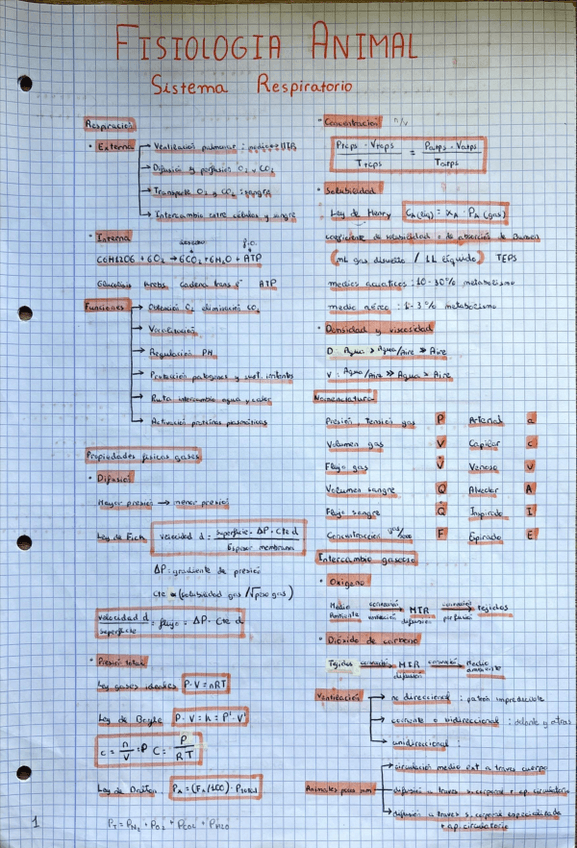 FISIOLOGIA ANIMAL
Sistema Respiratorio
Respiración
• Externa
→ Ventilación pulmonar :
→ Difusión y perfusión O₂ y CO₂
→ Transporte O₂ y CO₂ : sangre
→ Intercambio entre células y sangre
• Interna
C6H12O6 + 6O₂ → 6CO₂ + 6H₂O + ATP
ATP
Funciones
→ Obtención O₂ eliminación CO₂
→ Vocalización
→ Regulación PH
→ Protección patógenos y sust. irritantes
→ Ruta intercambio agua y calor
→ Activación proteínas plasmáticas
Propiedades físicas gases
• Difusión
Mayor presión → menor presión
Ley de Fick
velocidad d = superficie · ΔP · Cte d / Espesor membrana
ΔP: gradiente de presión
Cte ∝ (solubilidad gas / √pm gas)
velocidad d / superficie = flujo = ΔP · Cte d
• Presión total
Ley gases ideales P·V = nRT
Ley de Boyle P·V = k = P'·V'
c = n/V = P C = P/RT
Ley de Dalton PA = (FA/100) · Ptotal
PT = PN₂ + PO₂ + PCO₂ + PH₂O
1
• Concentración n/v
• Solubilidad
Ley de Henry CA(liq) = αA · PA (gas)
coeficiente de solubilidad o de absorción de Bunsen
(mL gas disuelto / 1L líquido) TEPS
medios acuáticos : 10-30% metabolismo
medio aéreo : 1-3% metabolismo
• Densidad y viscosidad
D : Agua > Agua/Aire >> Aire
V : Agua/Aire >> Agua > Aire
Nomenclatura
Presión, Tensión gas P Arterial a
Volumen gas V Capilar c
Flujo gas V̇ Venoso v
Volumen sangre Q Alveolar A
Flujo sangre Q̇ Inspirado I
Concentración F Espirado E
Intercambio gaseoso
• Oxígeno
Medio Ambiente convección ventilación → MIR difusión convección perfusión → tejidos
• Dióxido de carbono
Tejidos convección → MIR difusión convección → Medio ambiente
Ventilación
→ no direccional : patrón impredecible
→ corriente o bidireccional : delante y atras
→ unidireccional :
Animales pequeños
→ circulación medio ext a traves cuerpo
→ difusión a traves s. corporal + ap. circulatorio
→ difusión a traves s. corporal especializada + ap. circulatorio